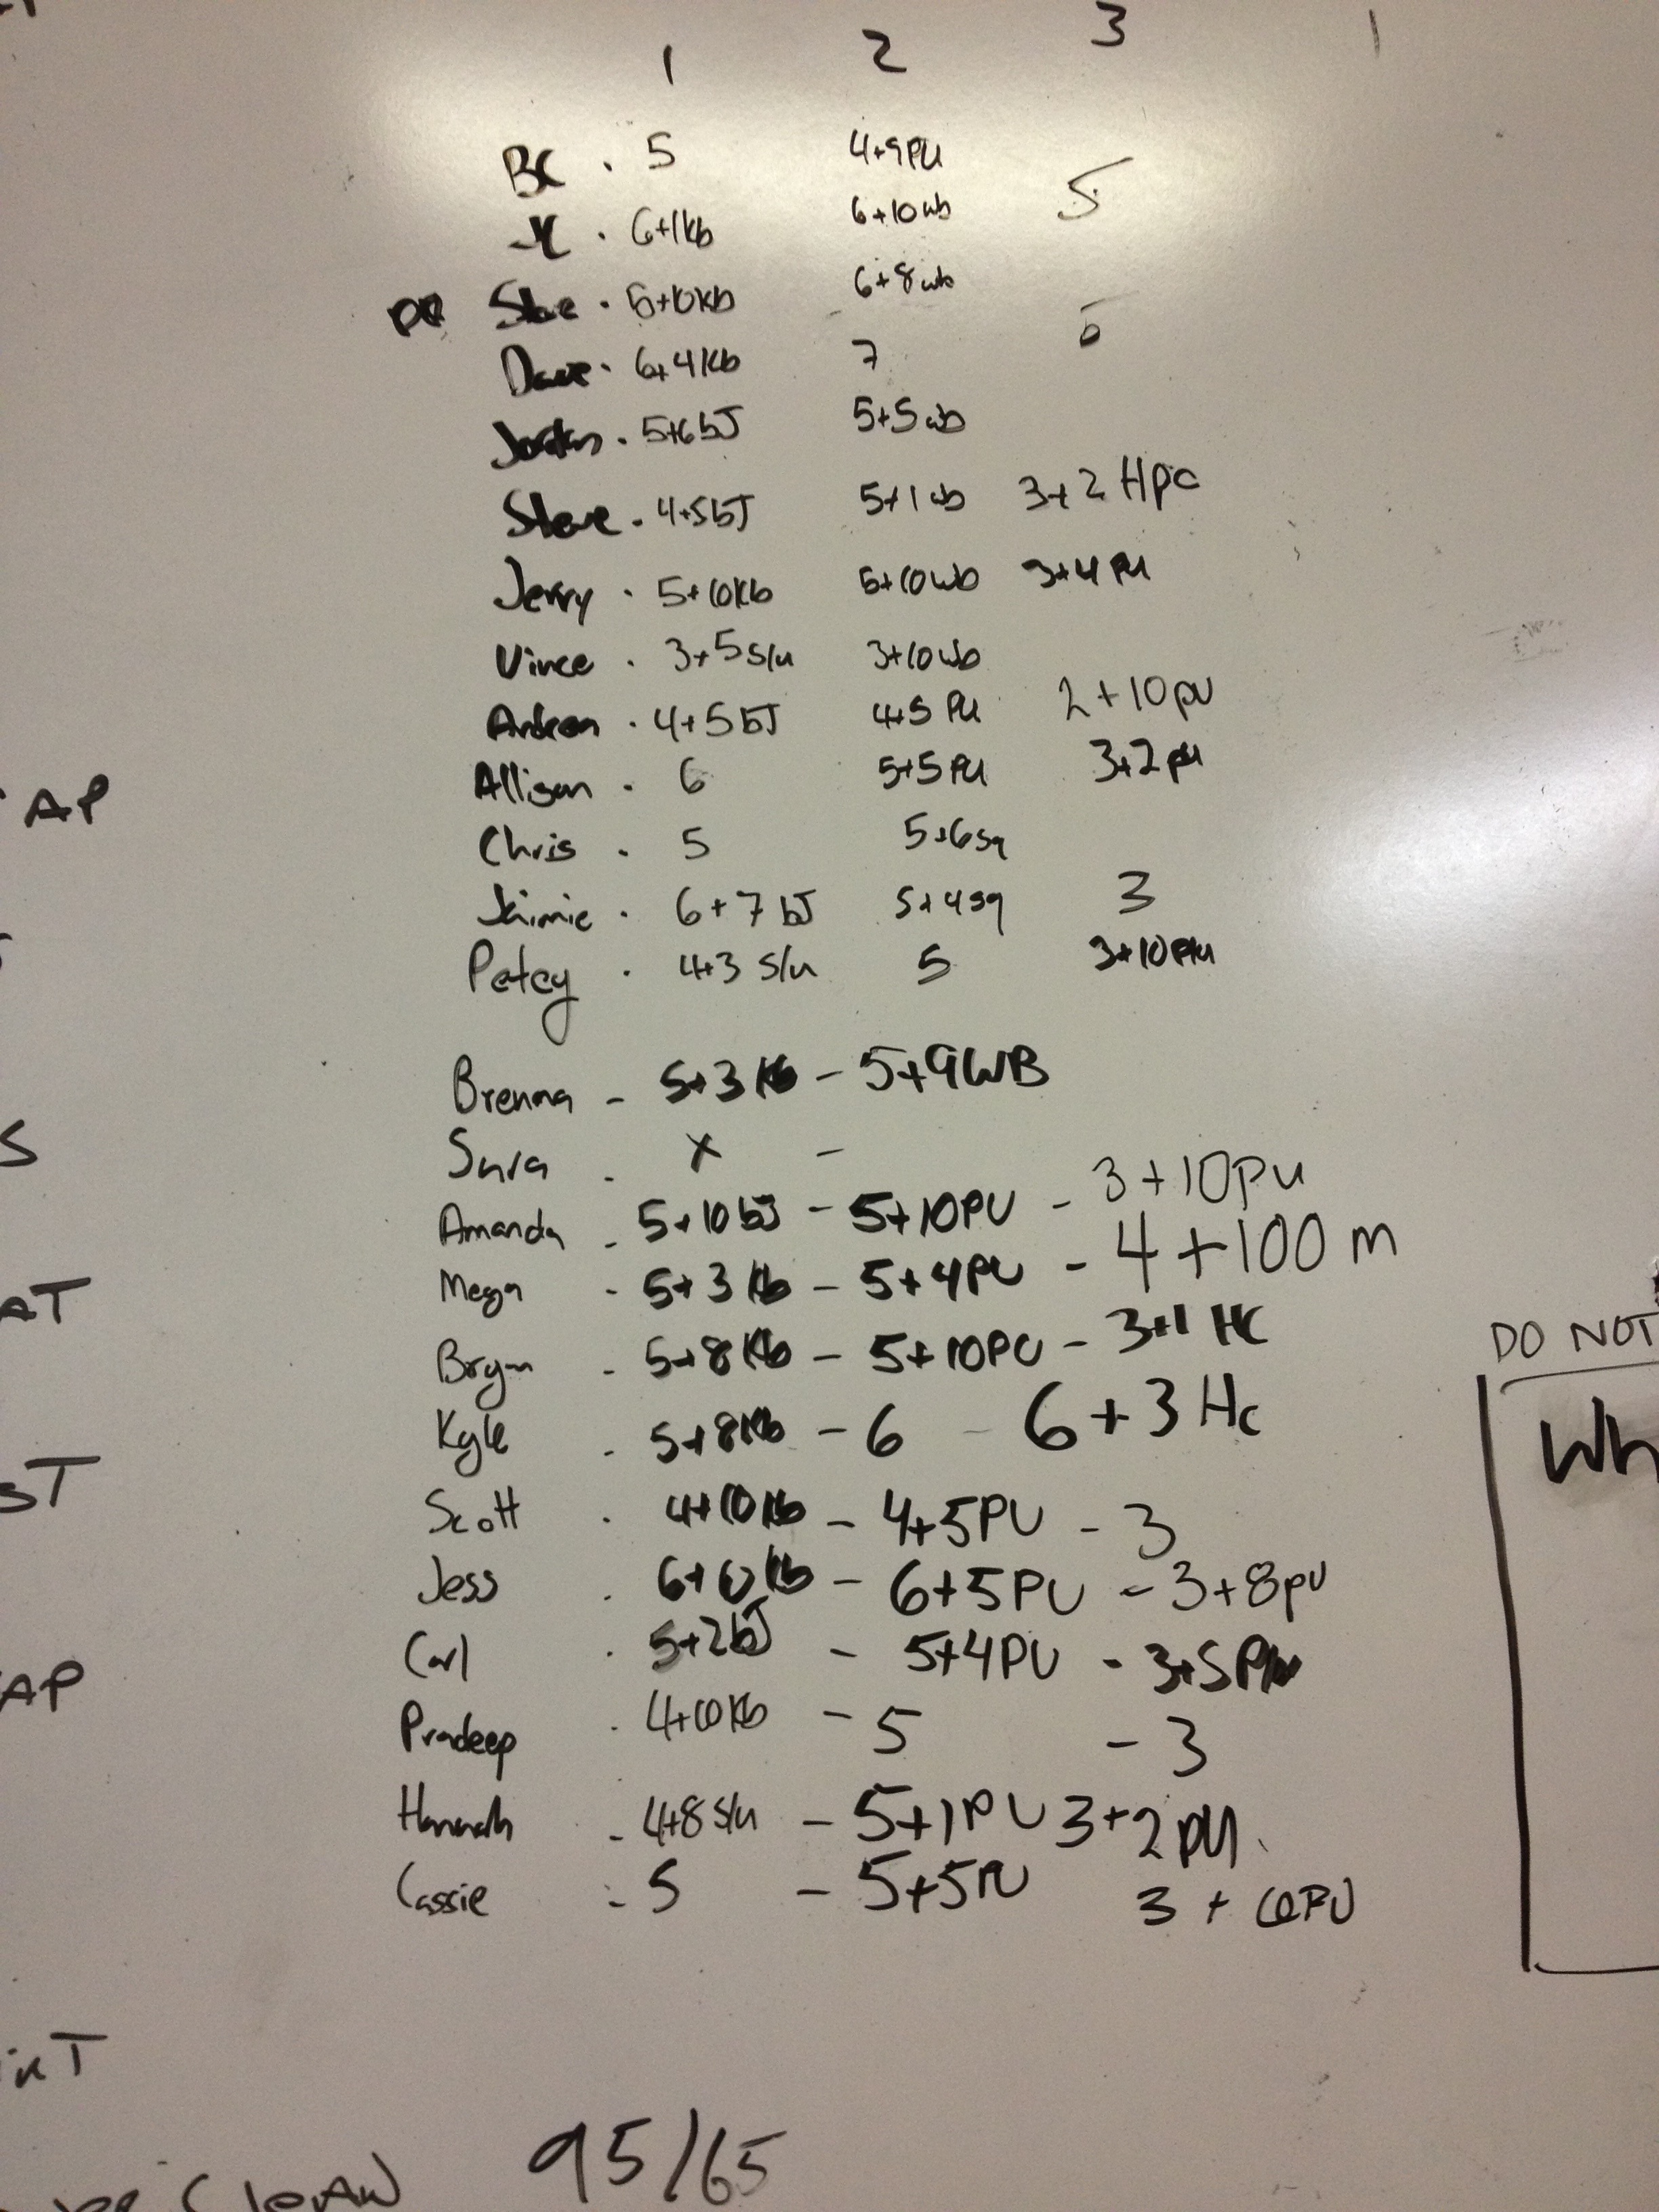 1 2 3
BC . 5 4+9PU
JC . 6+1kb 6+10wb 5
6+10kb 6+8wb
Dave . 6+4kb 7 5
Jordan . 5+6bJ 5+5wb
Steve . 4+5bJ 5+1wb 3+2 Hpc
Jerry . 5+10kb 5+10wb 3+4PU
Vince . 3+5s/u 3+10wb
. 4+5bJ 4+5PU 2+10pu
Allison . 6 5+5PU 3+2pu
Chris . 5 5+6sq
Jaimie . 6+7bJ 5+4sq 3
Petey . 4+3 s/u 5 3+10pu
Brenna - 5+3kb - 5+9WB
Sara - x -
Amanda - 5+10bJ - 5+10PU - 3+10pu
Megn - 5+3kb - 5+4PU - 4+100m
Bryn - 5+8kb - 5+10PU - 3+1 HC
Kyle - 5+8kb - 6 - 6+3Hc
Scott . 4+10kb - 4+5PU - 3
Jess . - 6+5PU - 3+8pu
Carl . 5+2bJ - 5+4PU - 3+5PU
Pradeep . 4+10kb - 5 - 3
Hannah - 4+8s/u - 5+1PU 3+2pu
Cassie - 5 - 5+5PU 3+
AP
S
AT
ST
AP
DO NOT
Wh
95/65